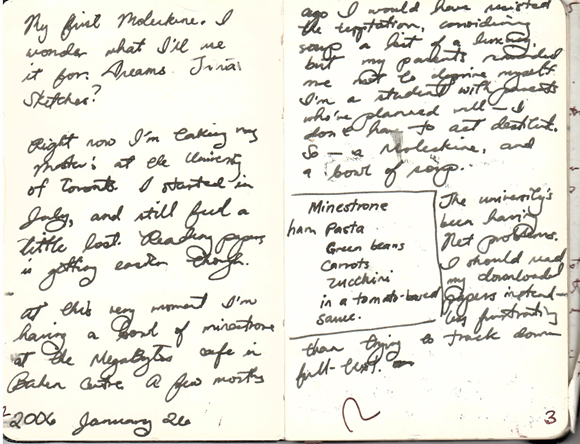 My first Moleskine. I
wonder what I'll use
it for. Dreams. Trivia.
Sketches?
Right now I'm taking my
master's at the University
of Toronto. I started in
July, and still feel a
little lost. Reading papers
is getting easier though.
At this very moment I'm
having a bowl of minestrone
at the Megabytes cafe in
Bahen Centre. A few months
2006 January 26
ago I would have resisted
the temptation, considering
soup a bit of a luxury
but my parents reminded
me not to deprive myself.
I'm a student with parents
who've planned well - I
don't have to act destitute.
So - a Moleskine, and
a bowl of soup.
Minestrone
ham Pasta
Green beans
Carrots
Zucchini
in a tomato-based
sauce.
The university's
been having
Net problems.
I should read
my downloaded
papers instead -
less frustrating
than trying to track down
full-text.
2
3